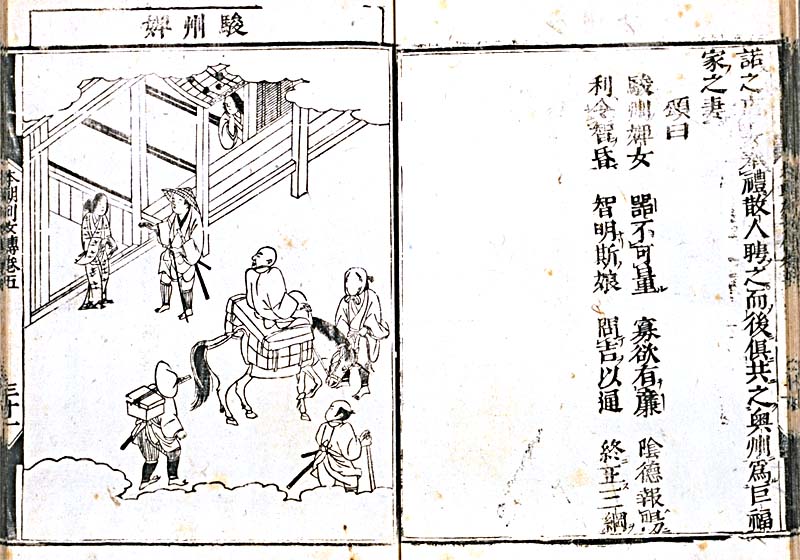 諾之禮散人聘之而後俱共之奧州爲巨福
家之妻
頌曰
駿州婢女 器不可量 寡欲有廉 陰德報陽
利令智昏 智明斯娘 問吉以通 終正三綱
駿州婢
本朝列女傳卷五 三十一